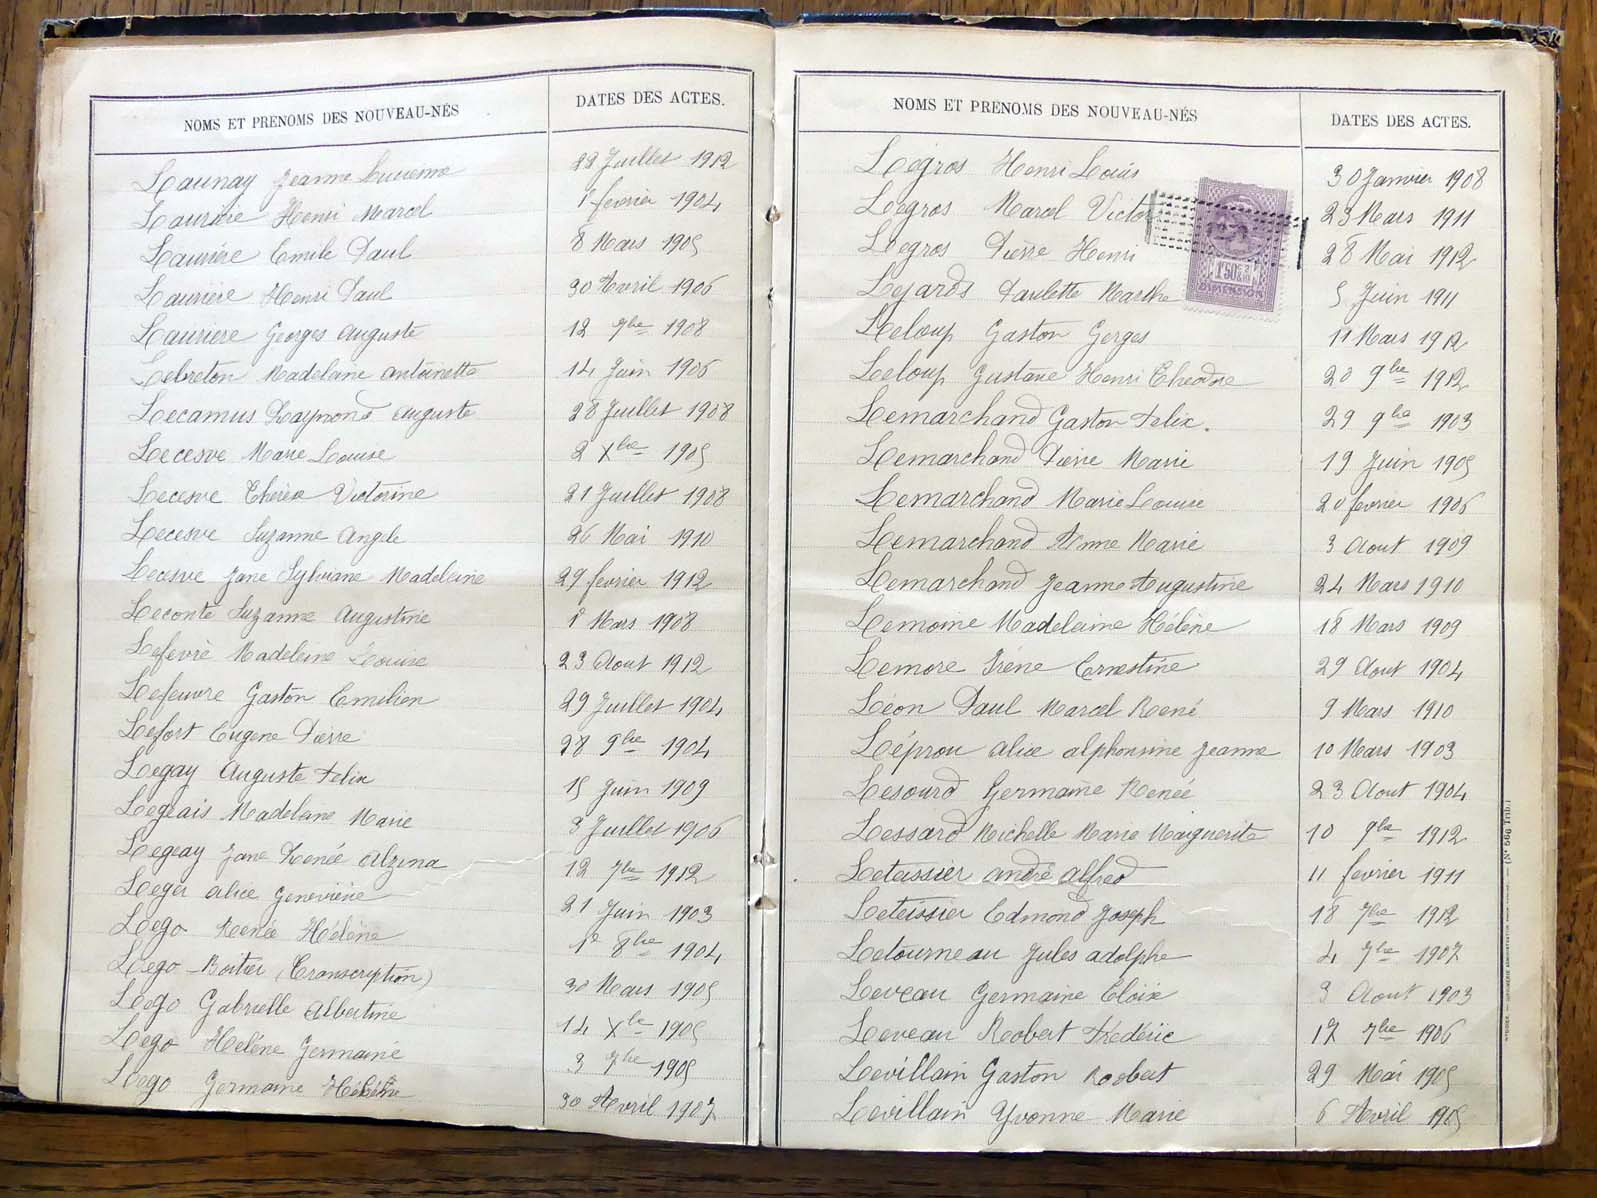 NOMS ET PRÉNOMS DES NOUVEAU-NÉS DATES DES ACTES.
Launay Jeanne Lucienne 22 Juillet 1912
Laurière Henri Marcel 1 fevrier 1904
Laurière Emile Paul 8 Mars 1905
Laurière Henri Paul 30 Avril 1906
Lauriere Georges Auguste 12 7bre 1908
Lebreton Madeleine Antoinette 14 Juin 1906
Lecamus Raymond Auguste 28 Juillet 1908
Lecesve Marie Louise 2 Xbre 1905
Lecesve Thérèse Victorine 21 Juillet 1908
Lecesve Suzanne Angèle 26 Mai 1910
Lecesve Jane Sylviane Madeleine 29 fevrier 1912
Leconte Suzanne Augustine 1 Mars 1908
Lefevre Madeleine Louise 23 Aout 1912
Lefeuvre Gaston Emelien 29 Juillet 1904
Lefort Eugene Pierre 28 9bre 1904
Legay Auguste Felix 15 Juin 1909
Legeais Madeleine Marie 3 Juillet 1906
Legeay Jane Renée Alzina 12 7bre 1912
Leger Alice Geneviève 21 Juin 1903
Lego Renée Hélène 1e 8bre 1904
Lego - Boitier (Transcription) 30 Mars 1905
Lego Gabrielle Albertine 14 Xbre 1905
Lego Helène Germaine 3 7bre 1905
Lego Germaine Hélène 30 Avril 1907
NOMS ET PRENOMS DES NOUVEAU-NÉS DATES DES ACTES.
Legros Henri Louis 30 Janvier 1908
Legros Marcel Victor 23 Mars 1911
Legros Pierre Henri 28 Mai 1912
1F50
DIMENSION
Lejards Paulette Marthe 5 Juin 1911
Leloup Gaston Gerges 11 Mars 1912
Leloup Gustave Henri Theodore 20 9bre 1912
Lemarchand Gaston Felix. 29 9bre 1903
Lemarchand Pierre Marie 19 Juin 1905
Lemarchand Marie Louise 20 fevrier 1906
Lemarchand Anne Marie 3 Aout 1909
Lemarchand Jeanne Augustine 24 Mars 1910
Lemoine Madeleine Hélène 18 Mars 1909
Lemore Irène Ernestine 29 Aout 1904
Léon Paul Marcel René 9 Mars 1910
Léprou Alice Alphonsine Jeanne 10 Mars 1903
Lesourd Germaine Renée 23 Aout 1904
Lessard Michelle Marie Marguerite 10 9bre 1912
Letessier André Alfred 11 fevrier 1911
Leteissier Edmond Joseph 18 7bre 1912
Letourneau Jules Adolphe 4 7bre 1907
Leveau Germaine Eloïse 3 Aout 1903
Leveau Roobert Frédéric 17 7bre 1906
Levillain Gaston Roobert 29 Mai 1905
Levillain Yvonne Marie 6 Avril 1905
(N° 566 Trib.)